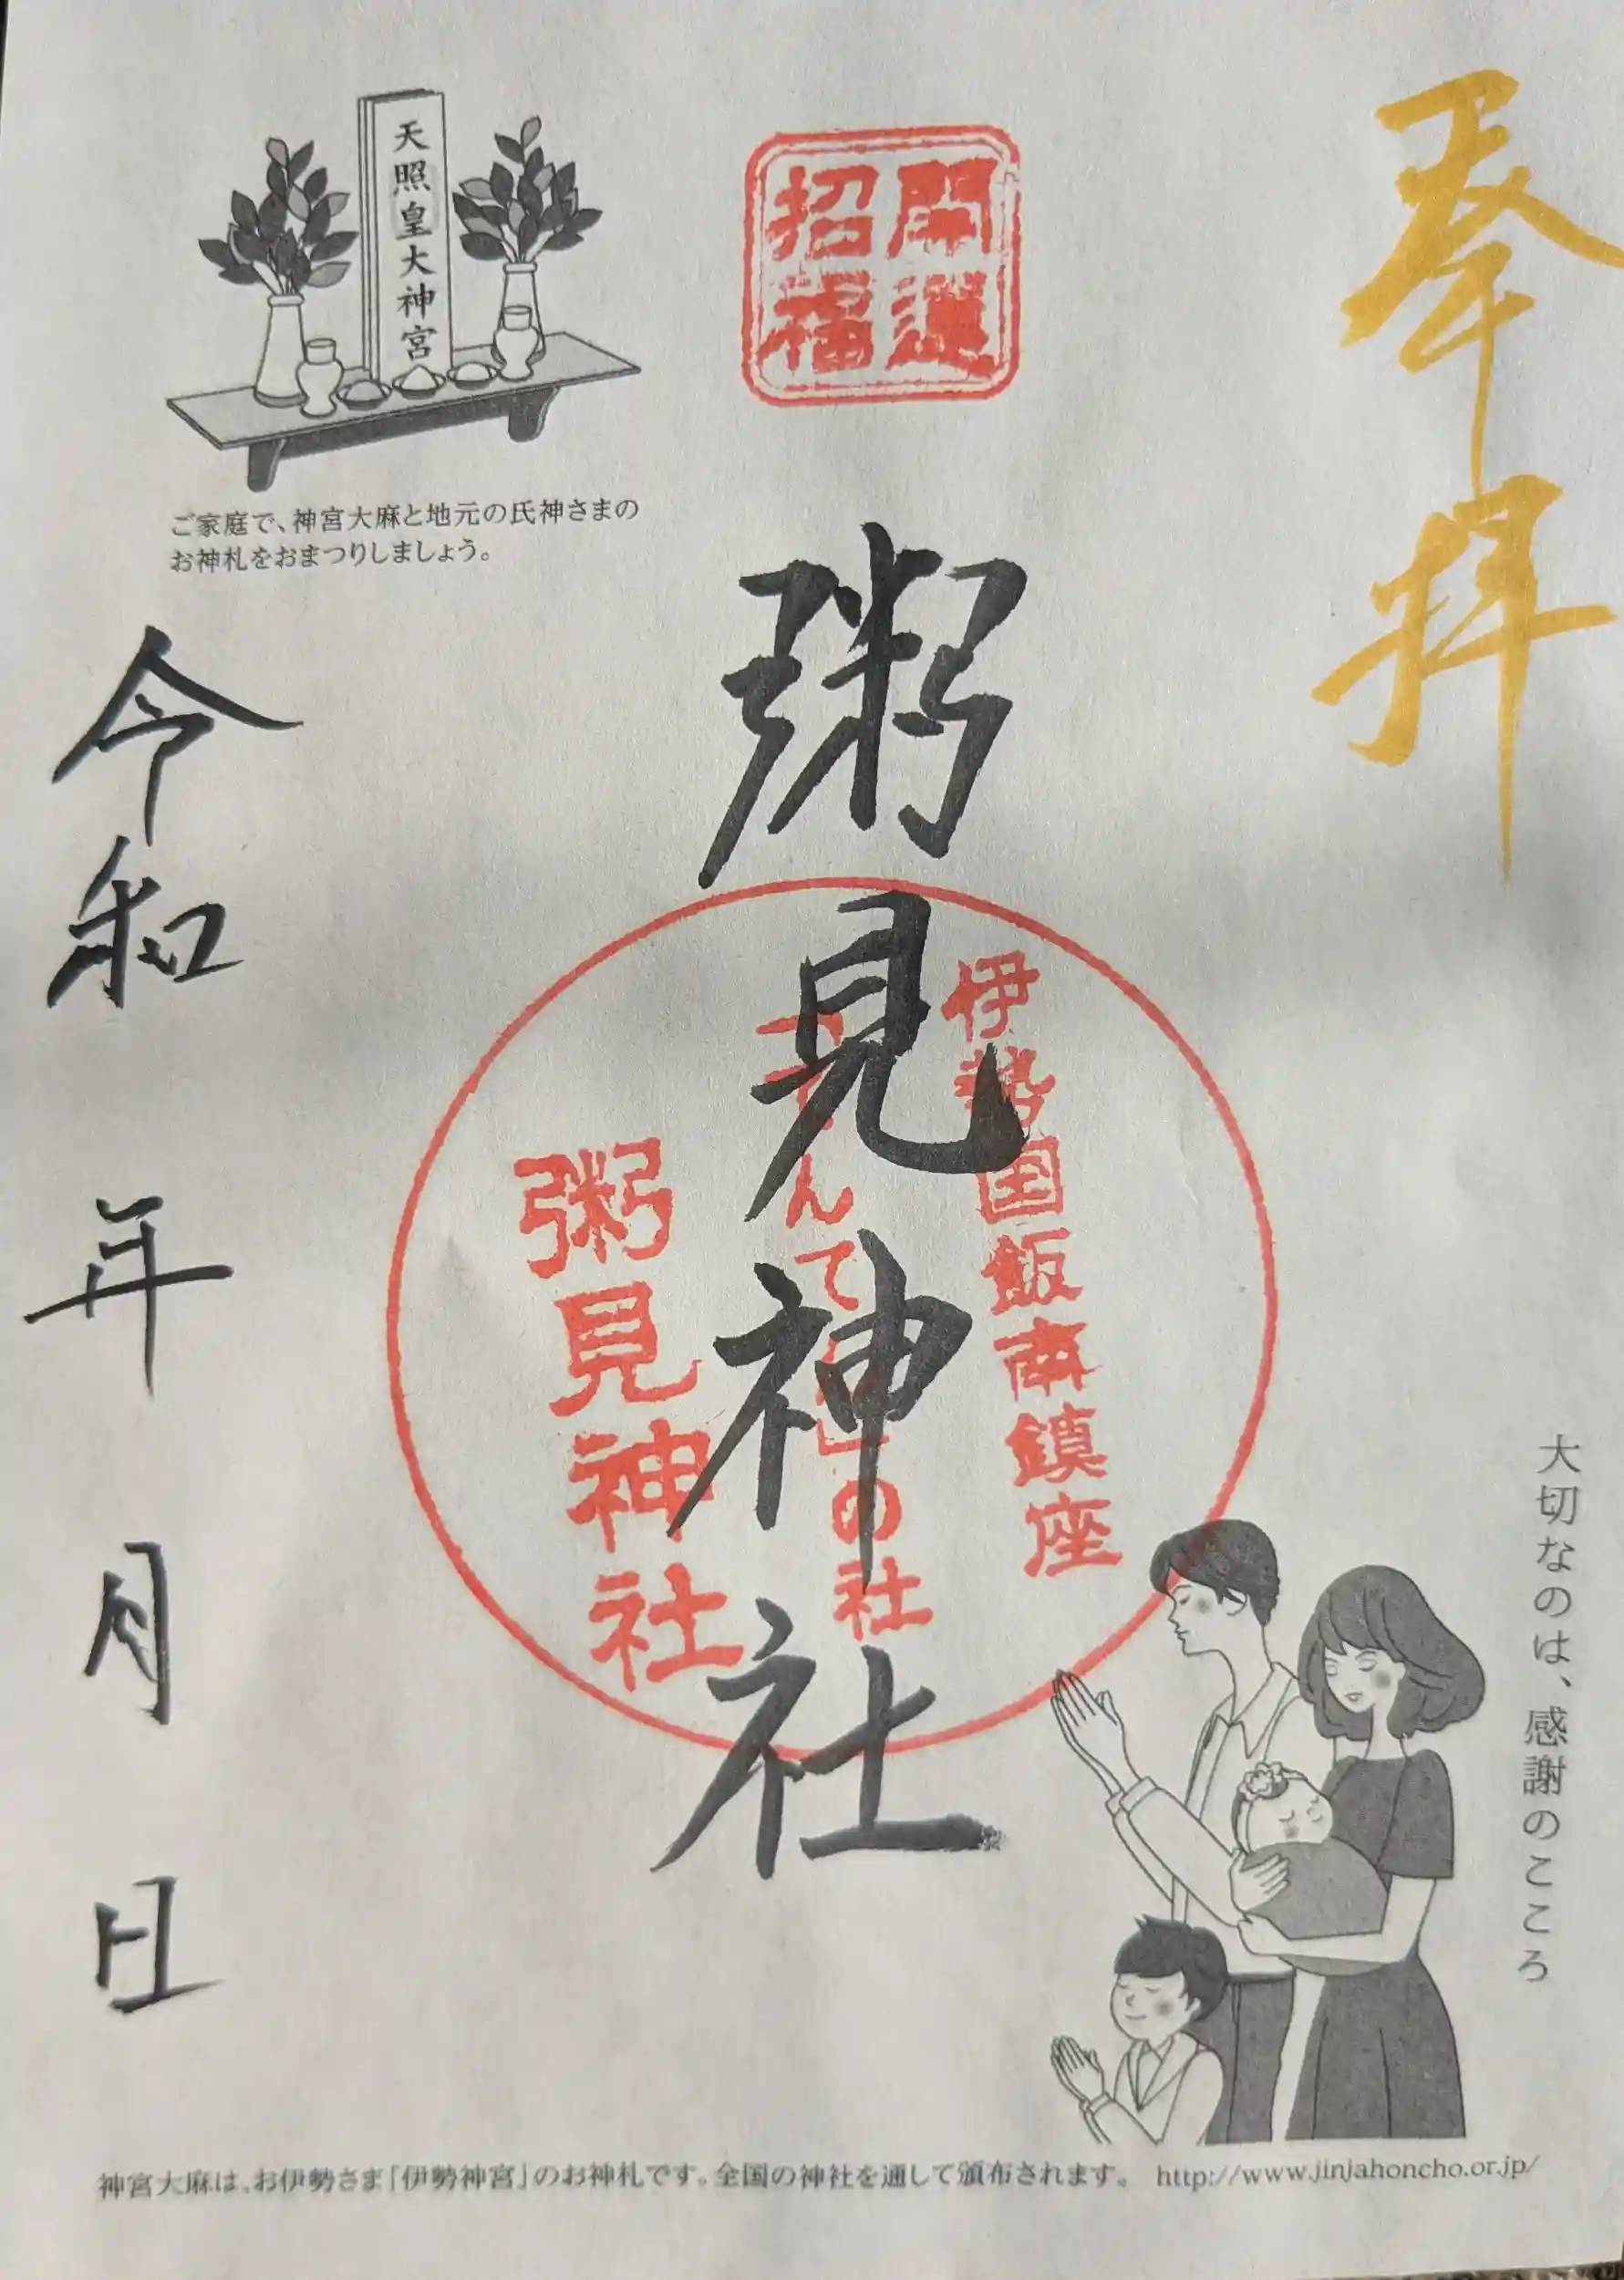 奉拝
開運
招福
粥見神社
伊勢国飯南鎮座
の社
粥見神社
天照皇大神宮
ご家庭で、神宮大麻と地元の氏神さまの
お神札をおまつりしましょう。
令和 年 月 日
大切なのは、感謝のこころ
神宮大麻は、お伊勢さま「伊勢神宮」のお神札です。全国の神社を通して頒布されます。 http://www.jinjahoncho.or.jp/